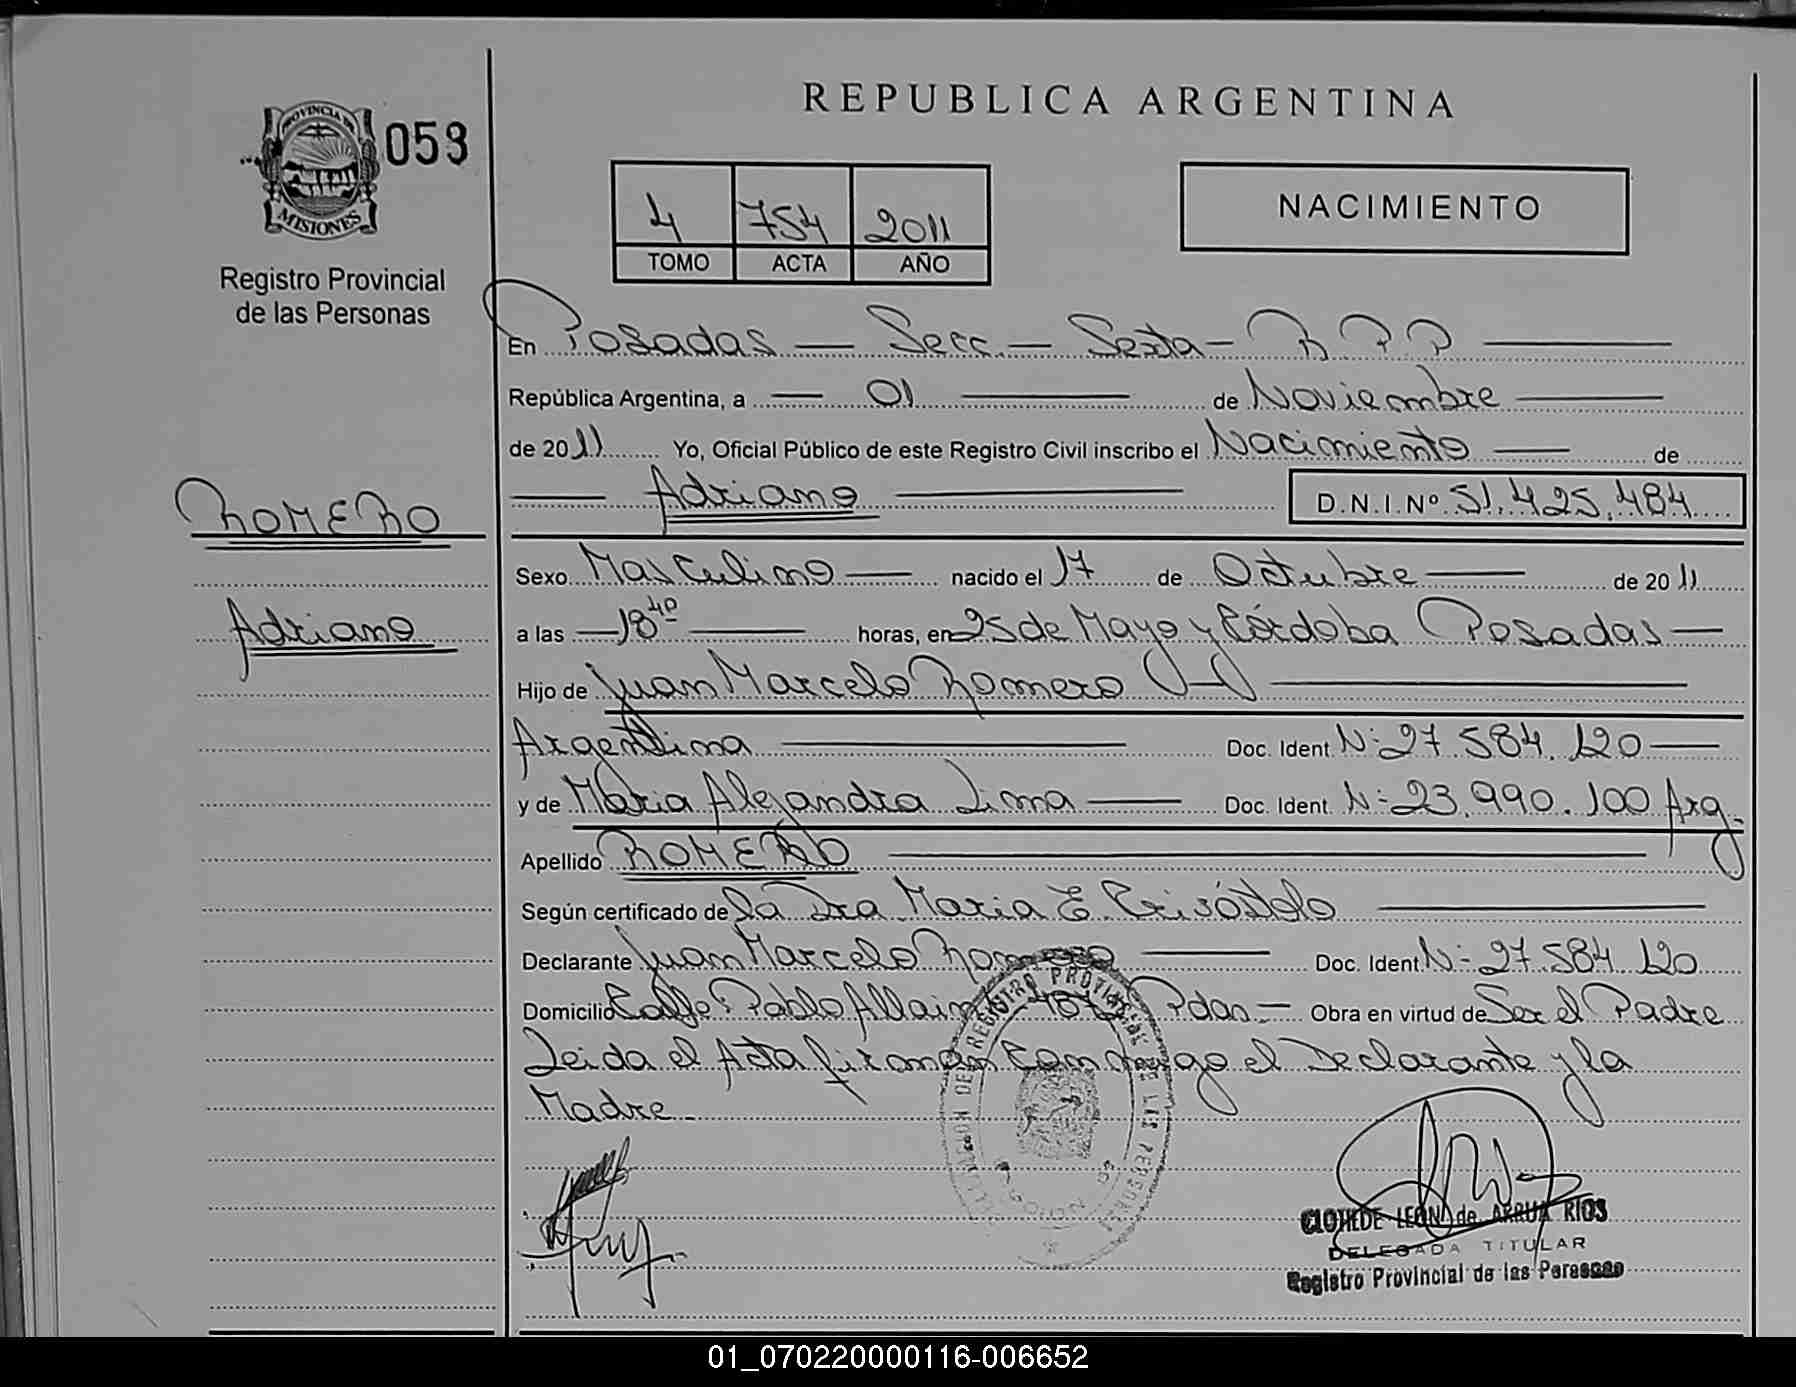 REPUBLICA ARGENTINA
PROVINCIA DE
MISIONES
053
Registro Provincial
de las Personas
4 754 2011
TOMO ACTA AÑO
NACIMIENTO
En Posadas — Secc. — Sexta — R P P
República Argentina, a — 01 — de Noviembre
de 2011 Yo, Oficial Público de este Registro Civil inscribo el Nacimiento — de
— Adriano — D.N.I. Nº 51.425.484
ROMERO
Adriano
Sexo Masculino — nacido el 17 de Octubre — de 2011
a las — 18 40 — horas, en 25 de Mayo y Córdoba Posadas —
Hijo de Juan Marcelo Romero
Argentina — Doc. Ident. N: 27.584.120 —
y de Maria Alejandra Lima — Doc. Ident. N: 23.990.100 Arg.
Apellido ROMERO
Según certificado de la Dra Maria E
Declarante Juan Marcelo Romero — Doc. Ident. N: 27.584.120
Domicilio Calle Pablo Pdas. — Obra en virtud de Ser el Padre
Leida el Acta firman conmigo el Declarante y la
Madre
CLOTILDE LEONI de ARRUA RIOS
DELEGADA TITULAR
Registro Provincial de las Personas
01_070220000116-006652